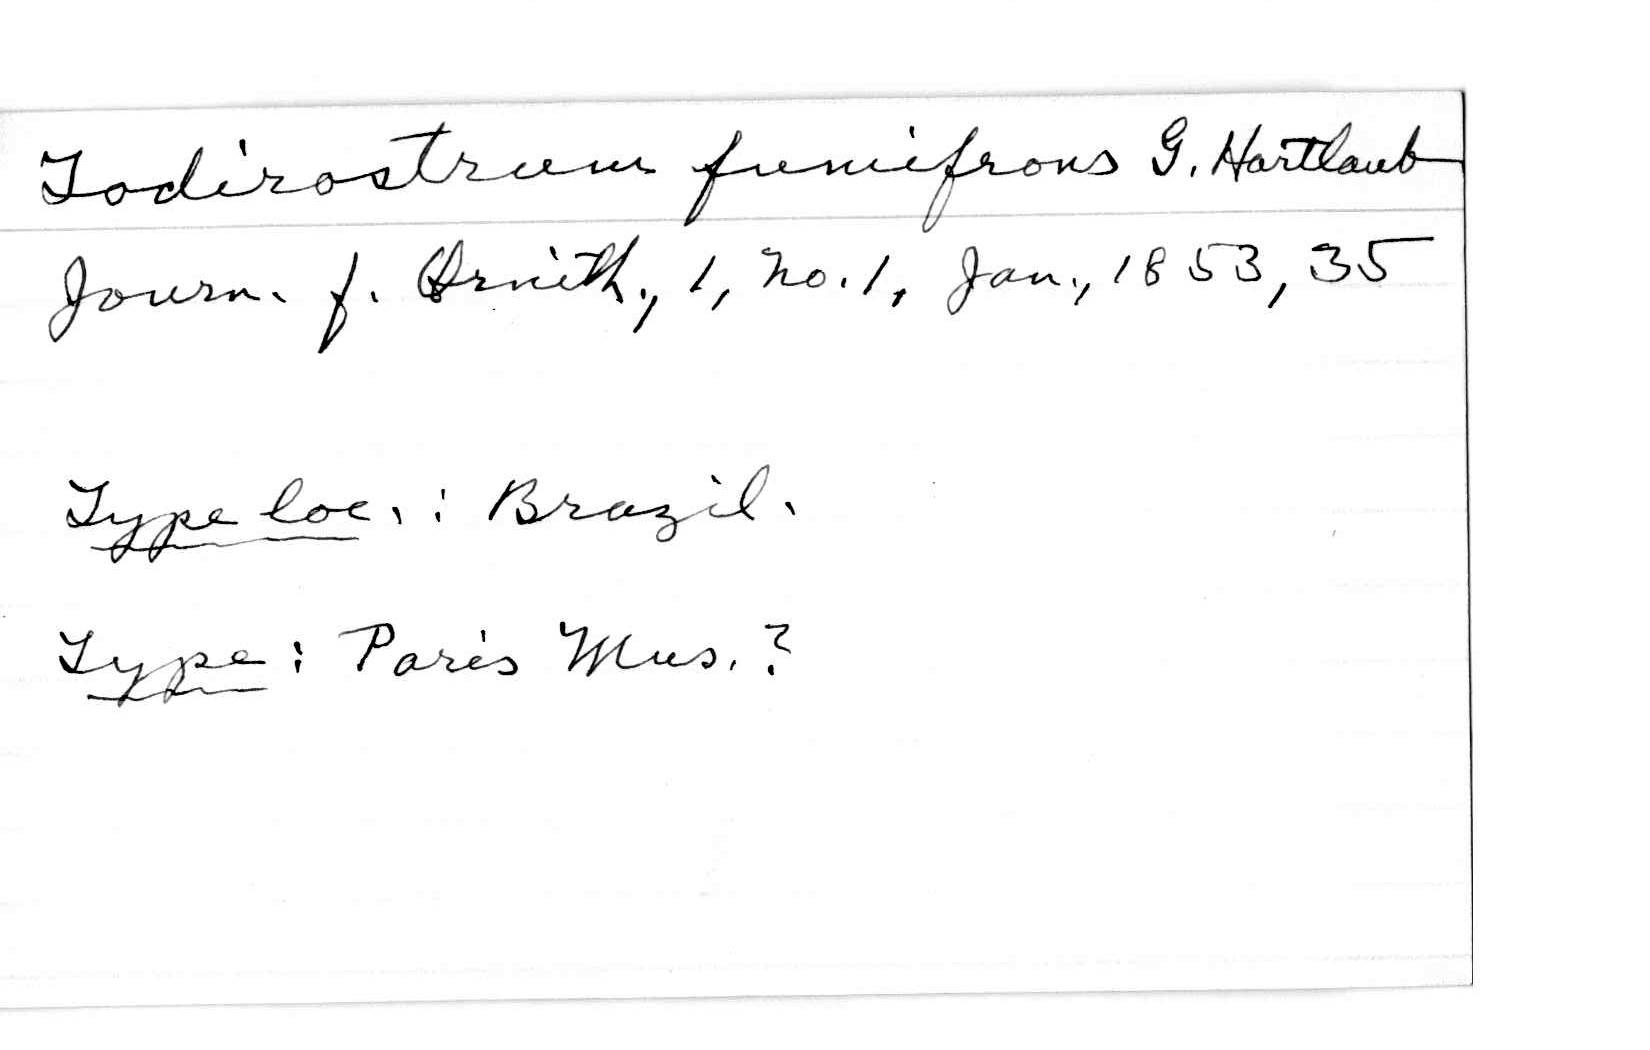 Todirostrum fumifrons G. Hartlaub
Journ. f. Ornith., 1, no. 1, Jan., 1853, 35
Type loc. : Brazil.
Type : Paris Mus. ?